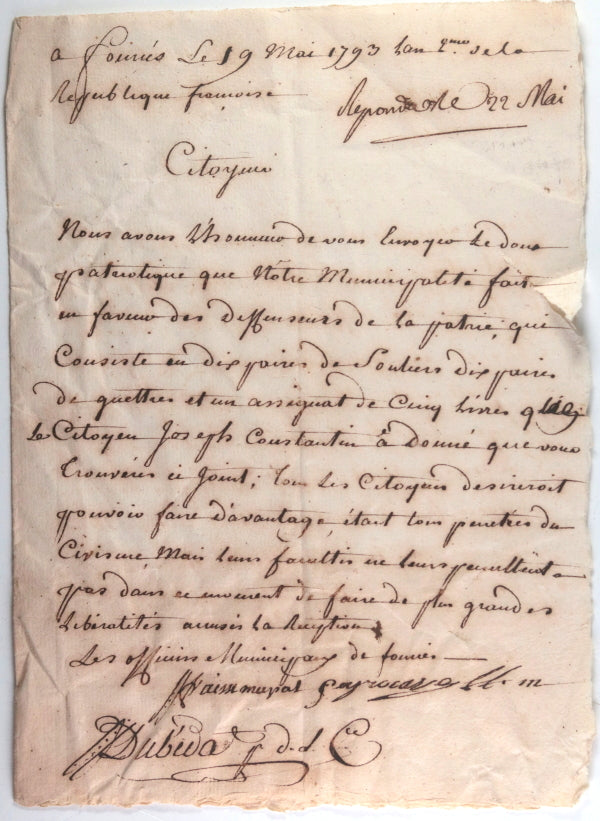 a fournés Le 19 Mai 1793 Lan 2.me de la
Republique françoise
Repondu le 22 Mai
Citoyens
Nous avons L'honneur de vous Envoyer Le don
patriotique que Notre Municipalité fait
en faveur des deffenseurs de La patrie, qui
Consiste en dix paires de Souliers dix paires
de guettres et un assignat de Cinq Livres que
Le Citoyen Joseph Constantin à Donné que vous
trouvéres ci Joint; tous Les Citoyens desireroit
pouvoir faire d'avantage, étant tous penetrés du
Civisme, Mais leurs facultés ne leurs permettent
pas dans ce moment de faire de plus grandes
Libéralités accusés La Reception
Les officiers Municipaux de fournés
m
Dubéda p d. d. C